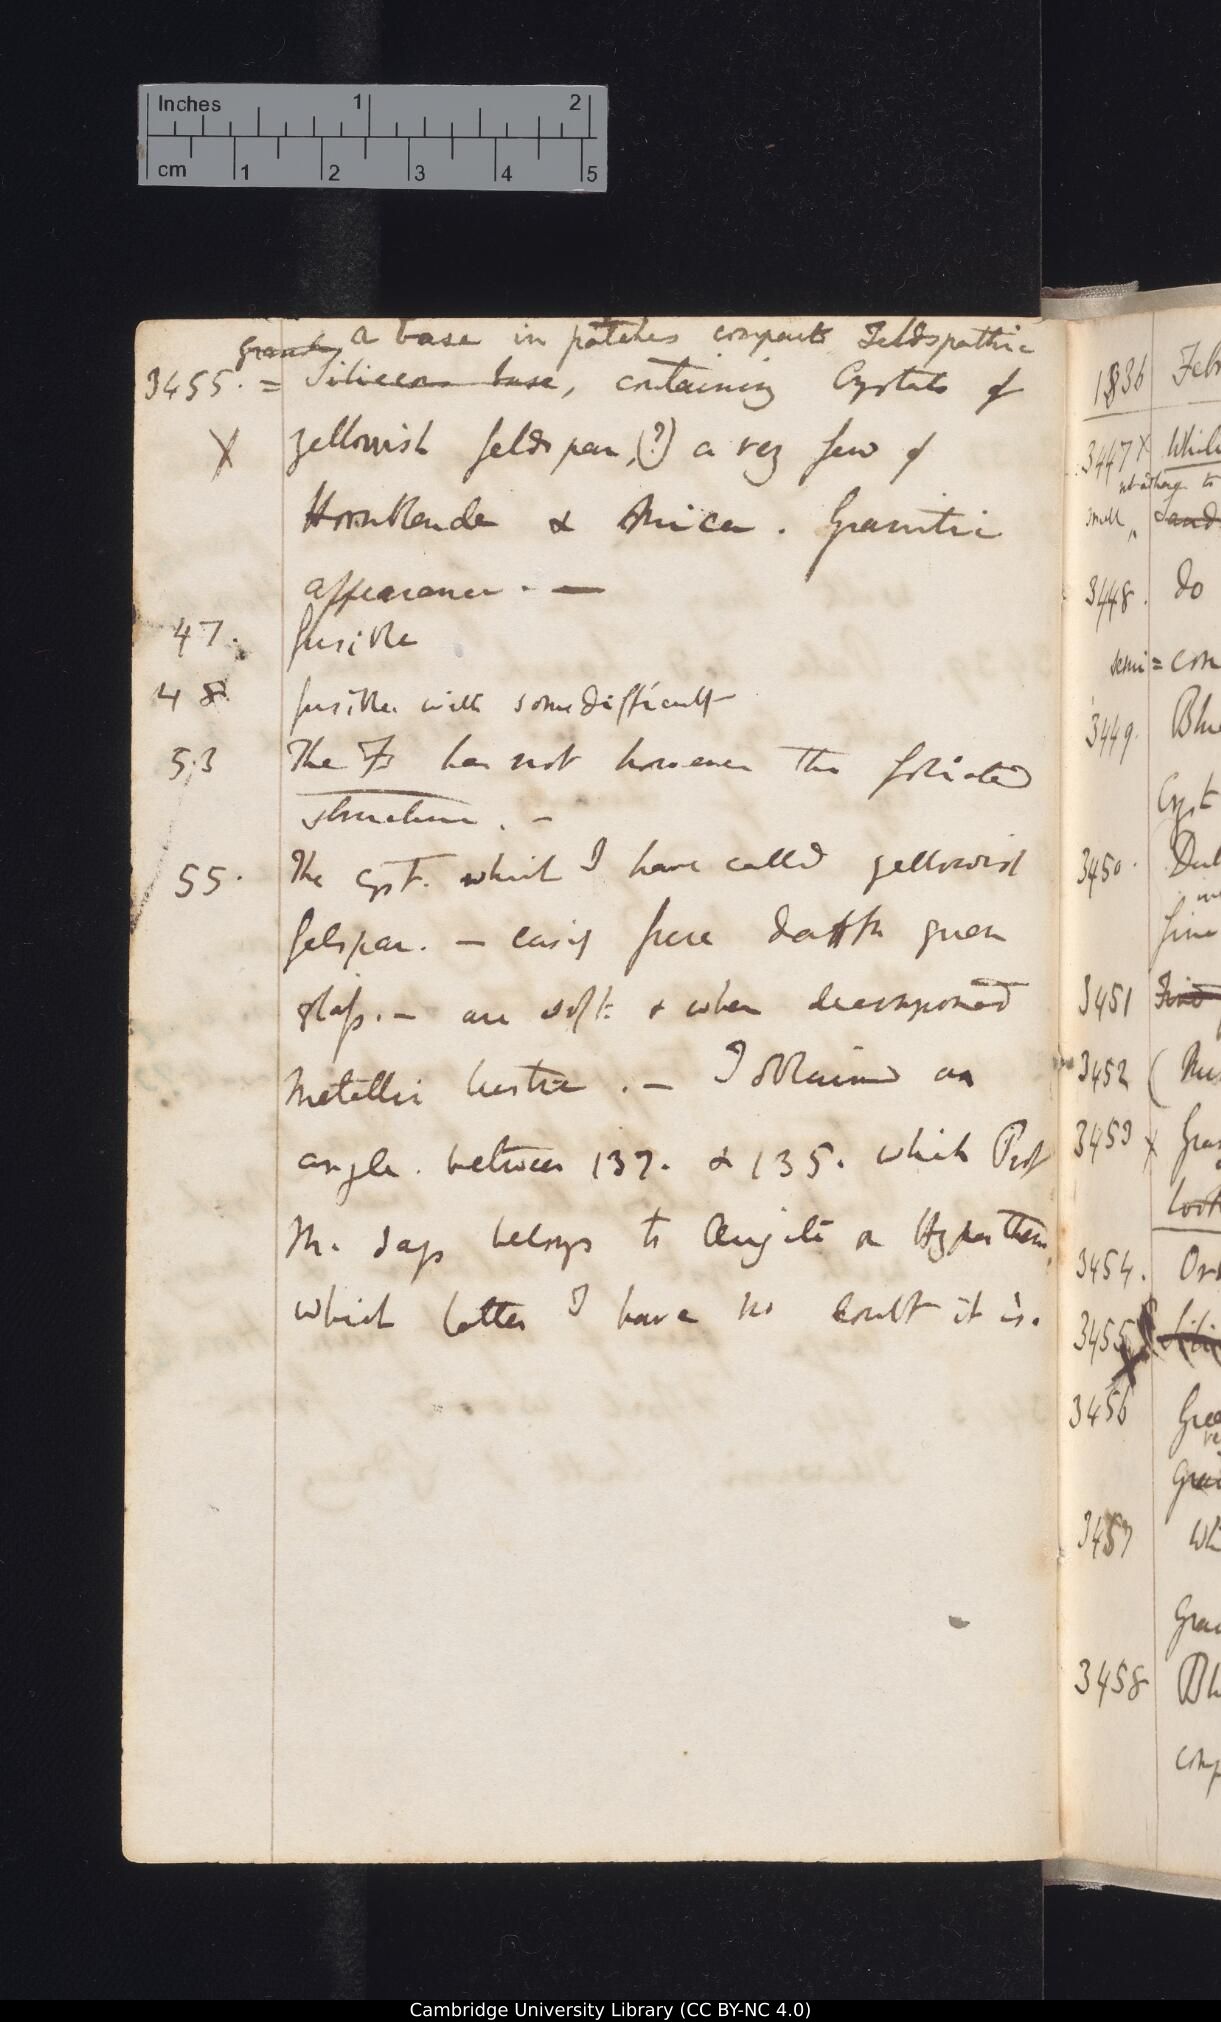 Inches 1 2
cm 1 2 3 4 5
a base in patches compact Feldspathic
3455. = Siliceous base, containing Crystals of
X yellowish feldspar, (?) a very few of
Hornblende & Mica. Granitic
appearance. —
47. fusible
48 fusible with some difficult
53 The F has not however the foliated
structure. —
55. The cryst. which I have called yellowish
felspar. — easily fuse green
glass. — are soft & when decomposed
metallic lustre. — I obtained an
angle between 137. & 135. which Prof
M. says belongs to Augite or Hypersthene,
which latter I have no doubt it is.
1836 Feb
3447 X
small
3448. do
semi = con
3449. Blue
Cryst
3450.
fine
3451
3452 (
3453 X
3454.
3455 X
3456
3457
3458
comp
Cambridge University Library (CC BY-NC 4.0)